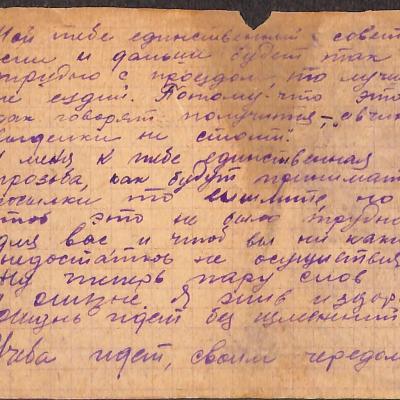 Мой тебе единственный совет
если и дальше будет так
трудно с проездом, то лучше
не езди. Потому что это
как говорят получится, – "овчин
выделки не стоит".
У меня к тебе единственная
просьба, как будут принимат
посылки то вышлите, но
чтоб это не было трудно
для вас и чтоб вы ни каки
недостатков не осуществля
Ну теперь пару слов
о жизне. Я жив и здоро
Жизнь идет без изменений
Учеба идет, своим чередом